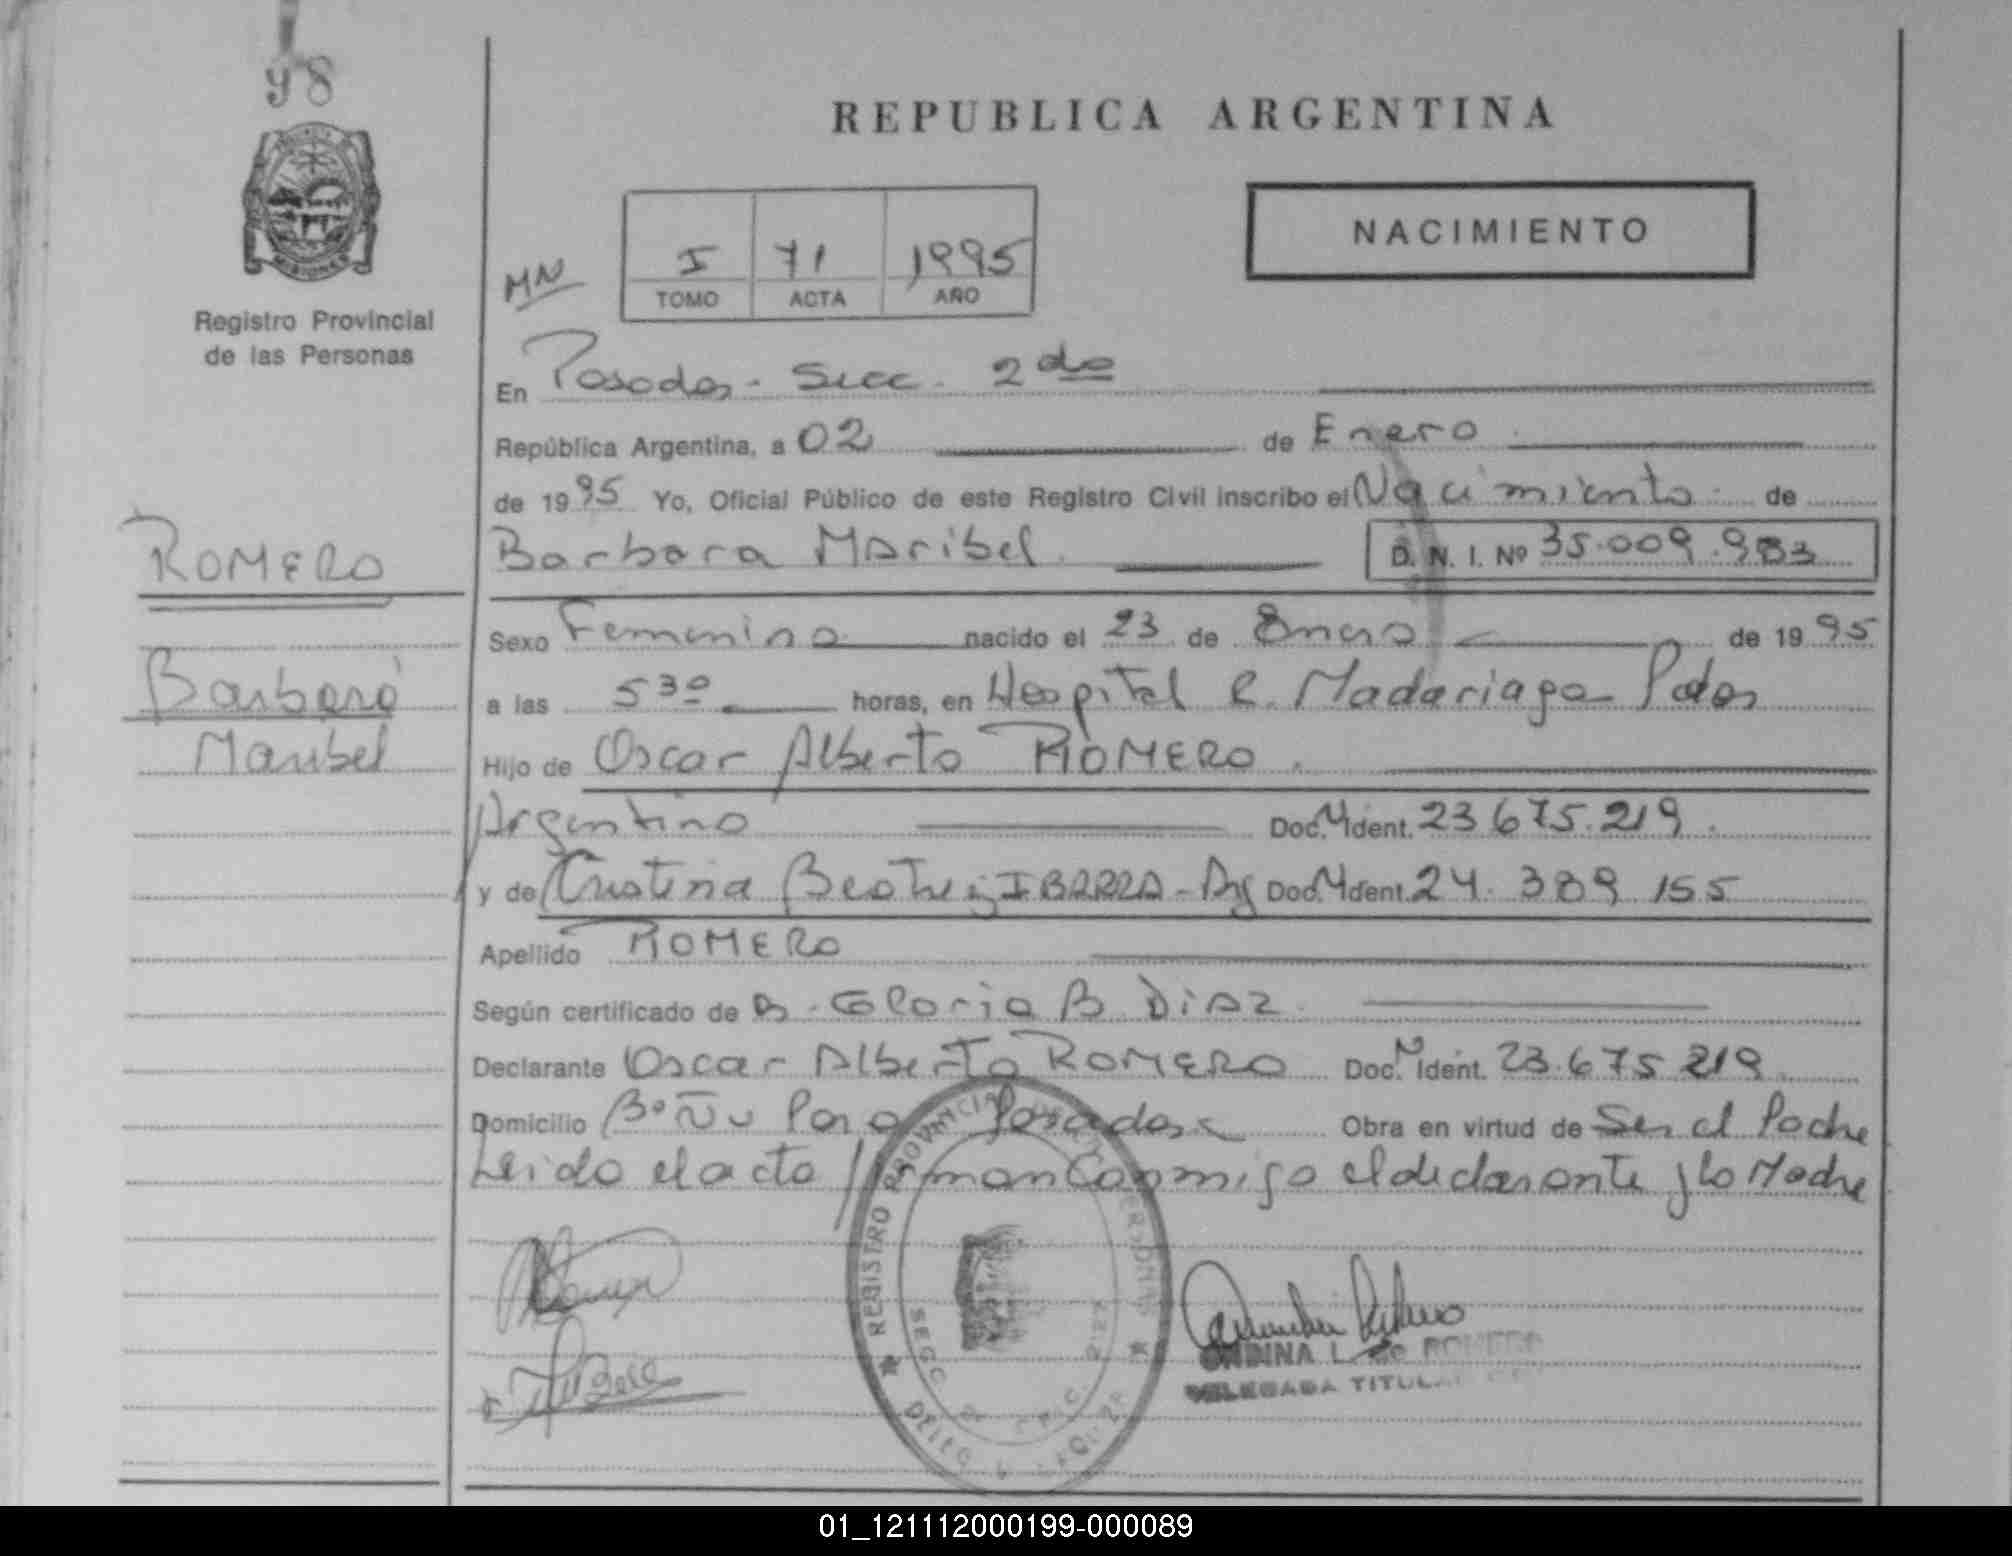 98
REPUBLICA ARGENTINA
NACIMIENTO
MN
I 71 1995
TOMO ACTA AÑO
MISIONES
Registro Provincial
de las Personas
En Posadas - Secc. 2da
República Argentina, a 02 de Enero
de 1995 Yo, Oficial Público de este Registro Civil inscribo el Nacimiento de
ROMERO
Barbara Maribel D. N. I. Nº 35.009.983
Sexo Femenino nacido el 23 de Enero de 1995
Barbara
a las 5 30 horas, en Hospital R. Madariaga Pdas
Maribel
Hijo de Oscar Alberto ROMERO.
Argentino Doc. Ident. 23.675.219.
y de Cristina Beatriz IBARRA - Arg Doc. Ident. 24.389 155
Apellido ROMERO
Según certificado de Gloria B. Diaz.
Declarante Oscar Alberto ROMERO Doc. Ident. 23.675 219
Domicilio Bº Ñu Pora Posadas Obra en virtud de Ser el Padre
Leido el acta firman Conmigo el declarante y la Madre
REGISTRO PROVINCIAL DE LAS PERSONAS
SECC.
ONDINA L. de ROMERO
DELEGADA TITULAR
01_121112000199-000089